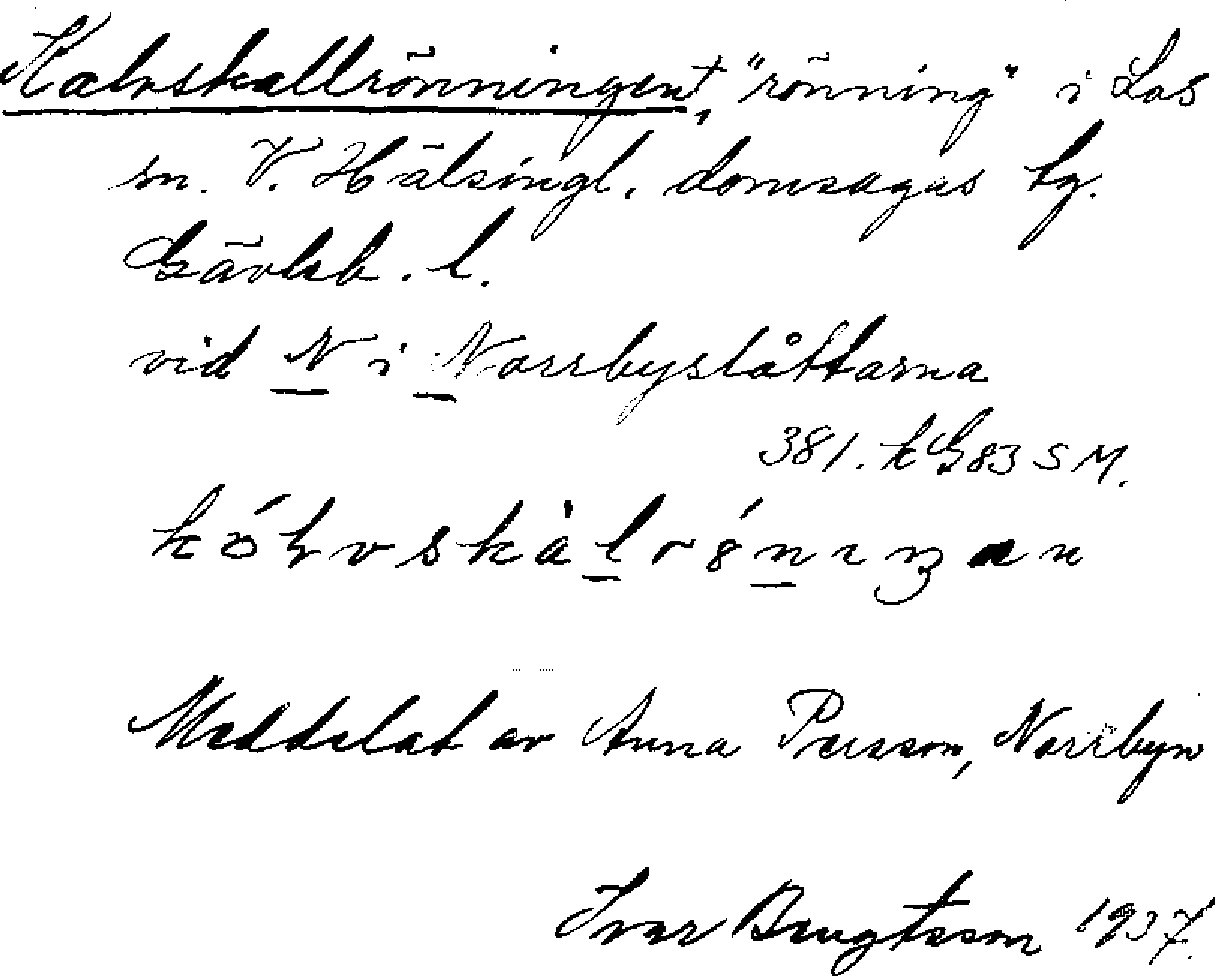 Kalvskallrönningen†, "rönning" i Los
sn. V. Hälsingl. domsagas tg.
Gävleb. l.
vid N i Norrbyslåttarna
381. k G 83 S M.
Meddelat av Anna Persson, Norrbyn
Ivar Bengtsson 1937.